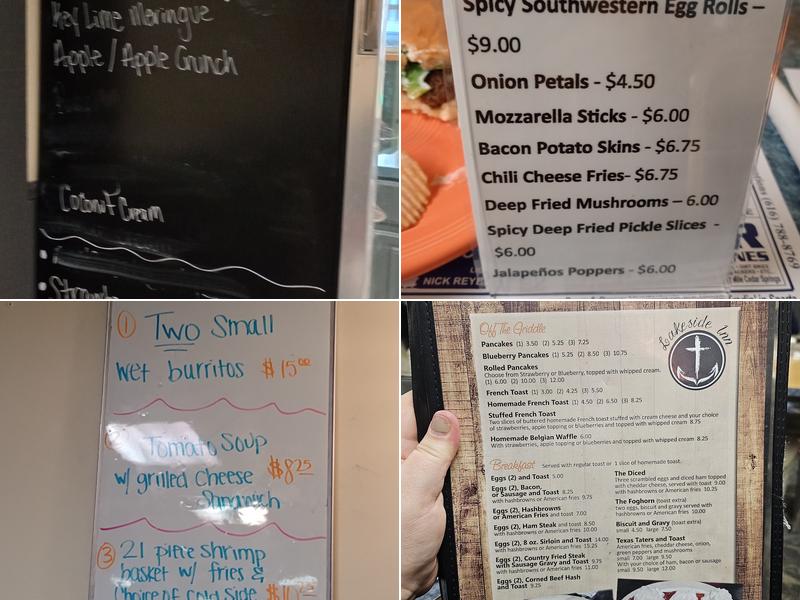 Key Lime Meringue
Apple / Apple Crunch
Coconut Cream
Spicy Southwestern Egg Rolls –
$9.00
Onion Petals - $4.50
Mozzarella Sticks - $6.00
Bacon Potato Skins - $6.75
Chili Cheese Fries- $6.75
Deep Fried Mushrooms – 6.00
Spicy Deep Fried Pickle Slices -
$6.00
Jalapeños Poppers - $6.00
NICK REYE
(616) 788-8769
① Two Small
wet burritos $15.00
② Tomato Soup
w/ grilled Cheese $8.25
Sandwich
③ 21 piece shrimp
basket w/ fries &
Choice of cold side
Lakeside Inn
Off The Griddle
Pancakes (1) 3.50 (2) 5.25 (3) 7.25
Blueberry Pancakes (1) 5.25 (2) 8.50 (3) 10.75
Rolled Pancakes
Choose from Strawberry or Blueberry, topped with whipped cream.
(1) 6.00 (2) 10.00 (3) 12.00
French Toast (1) 3.00 (2) 4.25 (3) 5.50
Homemade French Toast (1) 4.50 (2) 6.50 (3) 8.25
Stuffed French Toast
Two slices of buttered homemade French toast stuffed with cream cheese and your choice
of strawberries, apple topping or blueberries and topped with whipped cream 8.75
Homemade Belgian Waffle 6.00
With strawberries, apple topping or blueberries and topped with whipped cream 8.25
Breakfast Served with regular toast or 1 slice of homemade toast.
Eggs (2) and Toast 5.00
Eggs (2), Bacon,
or Sausage and Toast 8.25
with hashbrowns or American fries 9.75
Eggs (2), Hashbrowns
or American Fries and toast 7.00
Eggs (2), Ham Steak and toast 8.50
with hashbrowns or American fries 10.00
Eggs (2), 8 oz. Sirloin and Toast 14.00
with hashbrowns or American fries 15.25
Eggs (2), Country Fried Steak
with Sausage Gravy and Toast 9.75
with hashbrowns or American fries 11.00
Eggs (2), Corned Beef Hash
and Toast 9.25
The Diced
Three scrambled eggs and diced ham topped
with cheddar cheese, served with toast 9.00
with hashbrowns or American fries 10.25
The Foghorn (toast extra)
two eggs, biscuit and gravy served with
hashbrowns or American fries 10.00
Biscuit and Gravy (toast extra)
small 4.50 large 7.50
Texas Taters and Toast
American fries, cheddar cheese, onion,
green peppers and mushrooms
small 7.00 large 9.50
With your choice of ham, bacon or sausage
small 9.50 large 12.00